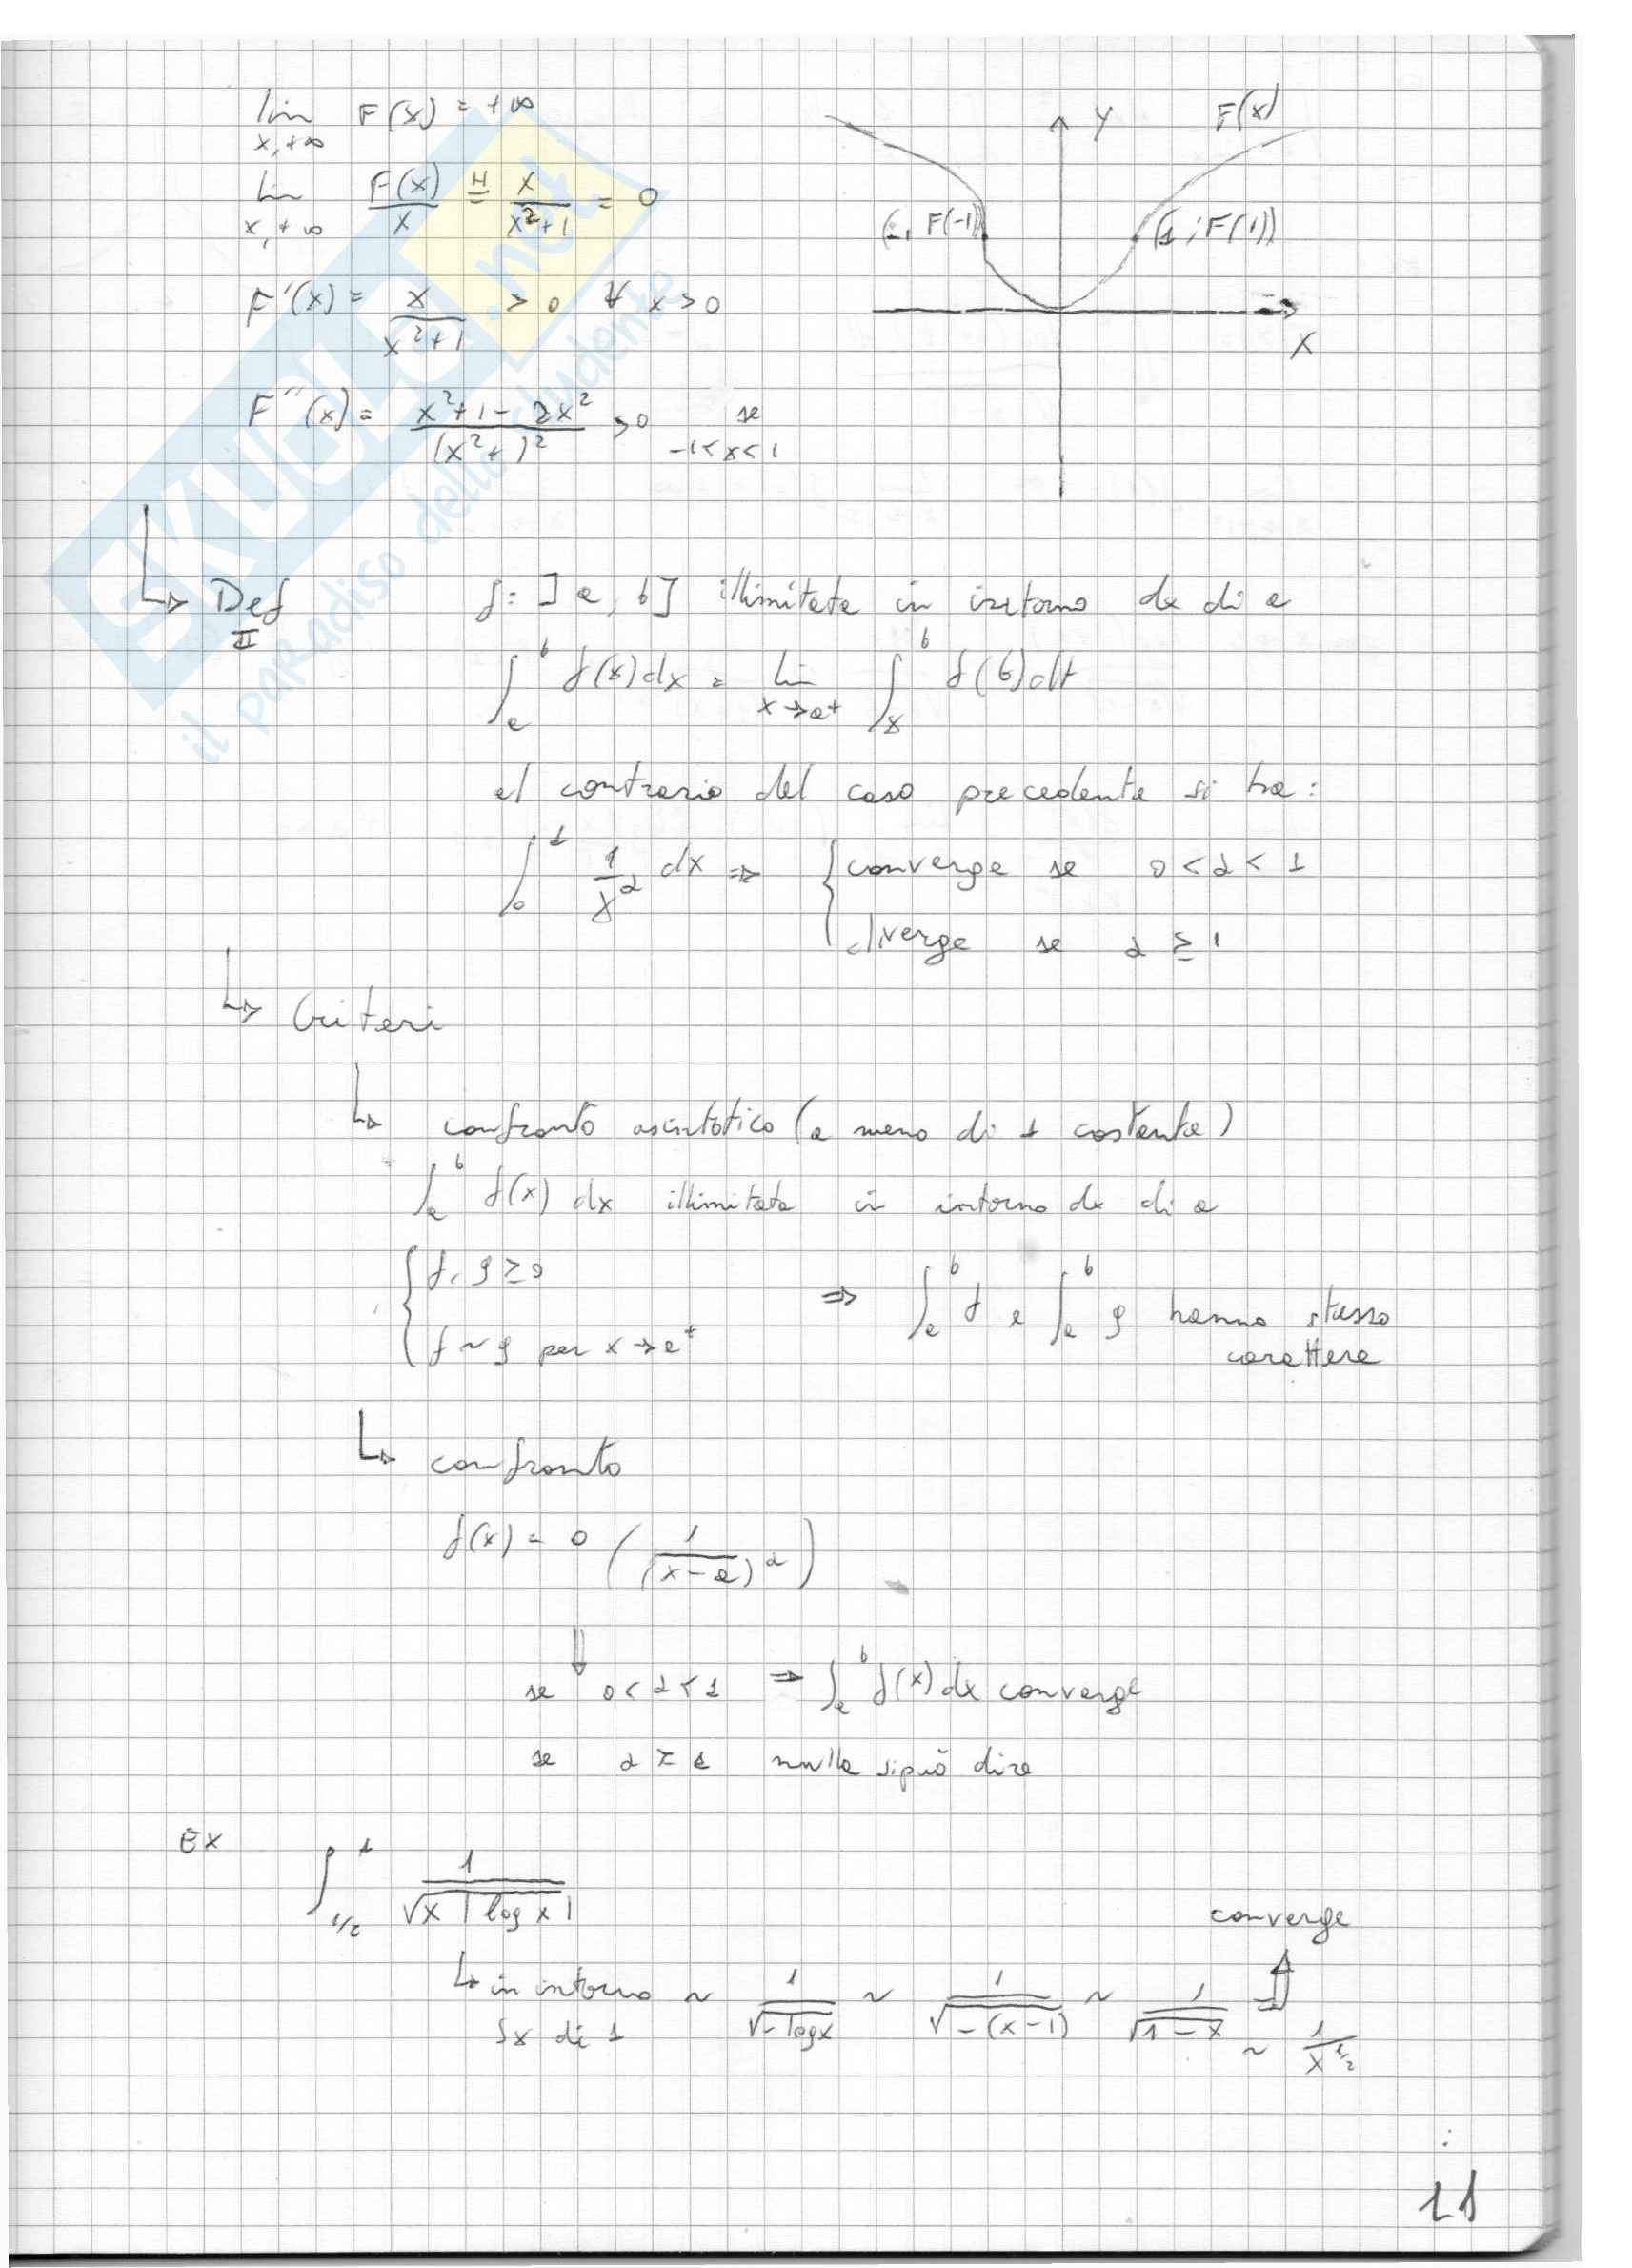 lim F(x) = +∞
x→+∞
lim F(x)/x =(H) x/(x²+1) = 0
x→+∞
F'(x) = x/(x²+1) > 0 ∀ x > 0
F''(x) = (x²+1-2x²)/(x²+ )² > 0 se -1<x<1
Y
F(x)
F(-1))
(1; F(1))
X
SKUOLA.net
il paradiso dello studente
Def II f: ]a, b] illimitata in intorno dx di a
∫_a^b f(x)dx = lim_{x→a⁺} ∫_x^b f(t)dt
al contrario del caso precedente si ha:
∫_0^1 1/x^α dx ⇒ { converge se 0<α<1
diverge se α ≥ 1
↳ Criteri
↳ confronto asintotico (a meno di 1 costante)
∫_a^b f(x) dx illimitata in intorno dx di a
{ f, g ≥ 0
f ~ g per x→a⁺ ⇒ ∫_a^b f e ∫_a^b g hanno stesso carattere
↳ confronto
f(x) = o(1/(x-a)^α)
⇓
se 0<α<1 ⇒ ∫_a^b f(x)dx converge
se α ≥ 1 nulla si può dire
Ex ∫_{1/2}^1 1/√x |log x|
converge
↳ in intorno sx di 1 ~ 1/√-logx ~ 1/√-(x-1) ~ 1/√1-x ~ 1/x^{1/2}
11